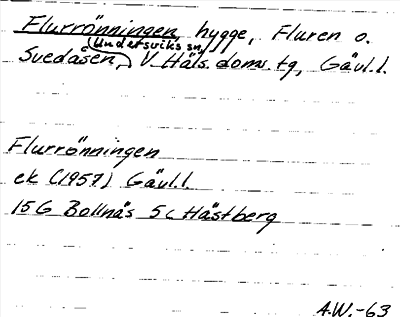 Flurrönningen, hygge, Fluren o.
(Undersviks sn,)
Svedåsen, V. Häls. doms. tg, Gävl. l.
Flurrönningen
ek (1957) Gävl. l.
15G Bollnäs 5c Hästberg
A.W.-63